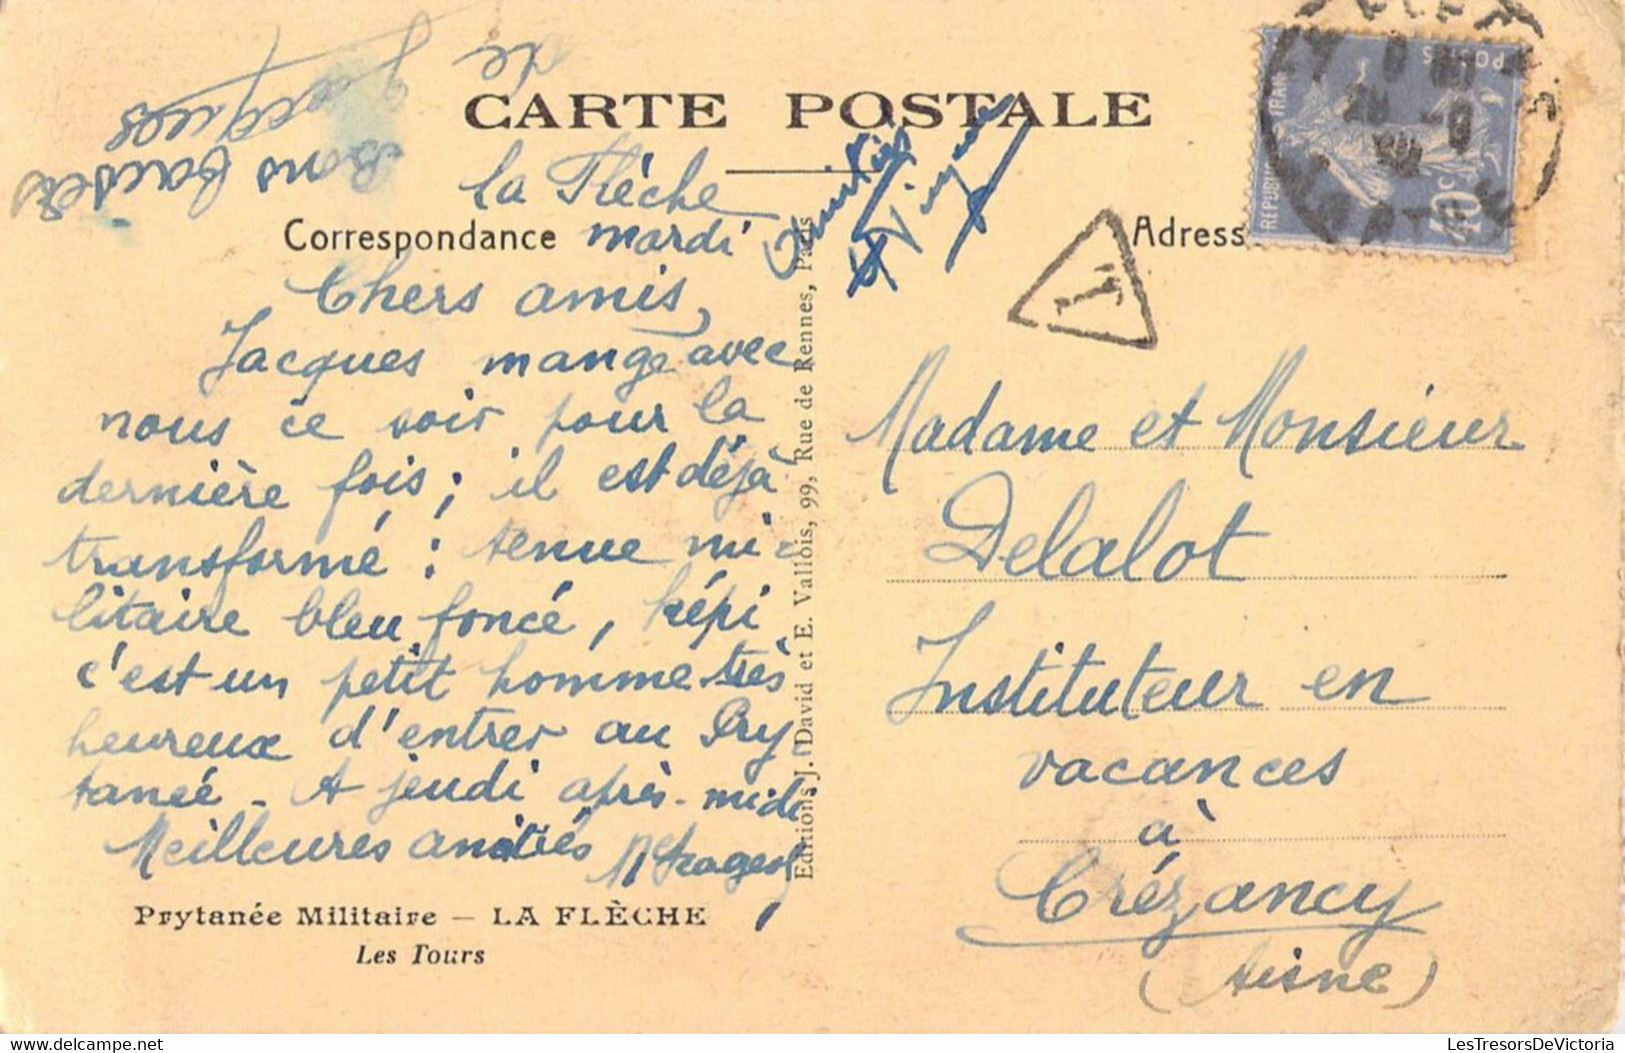 Bons baisers
de Jacques
CARTE POSTALE
la Flèche
mardi
Correspondance
Amitiés
Adress
REPUBLIQUE FRAN
POSTES
40c
T
Chers amis,
Jacques mange avec
nous ce soir pour la
dernière fois ; il est déjà
transformé : tenue mi-
litaire bleu foncé, képi
c'est un petit homme très
heureux d'entrer au Pry
tanée - A jeudi après-midi
Meilleures amitiés
Prytanée Militaire — LA FLÈCHE
Les Tours
Editions J. David et E. Vallois, 99, Rue de Rennes, Paris
Madame et Monsieur
Delalot
Instituteur en
vacances
à
Crézancy
(Aisne)
LesTresorsDeVictoria.com